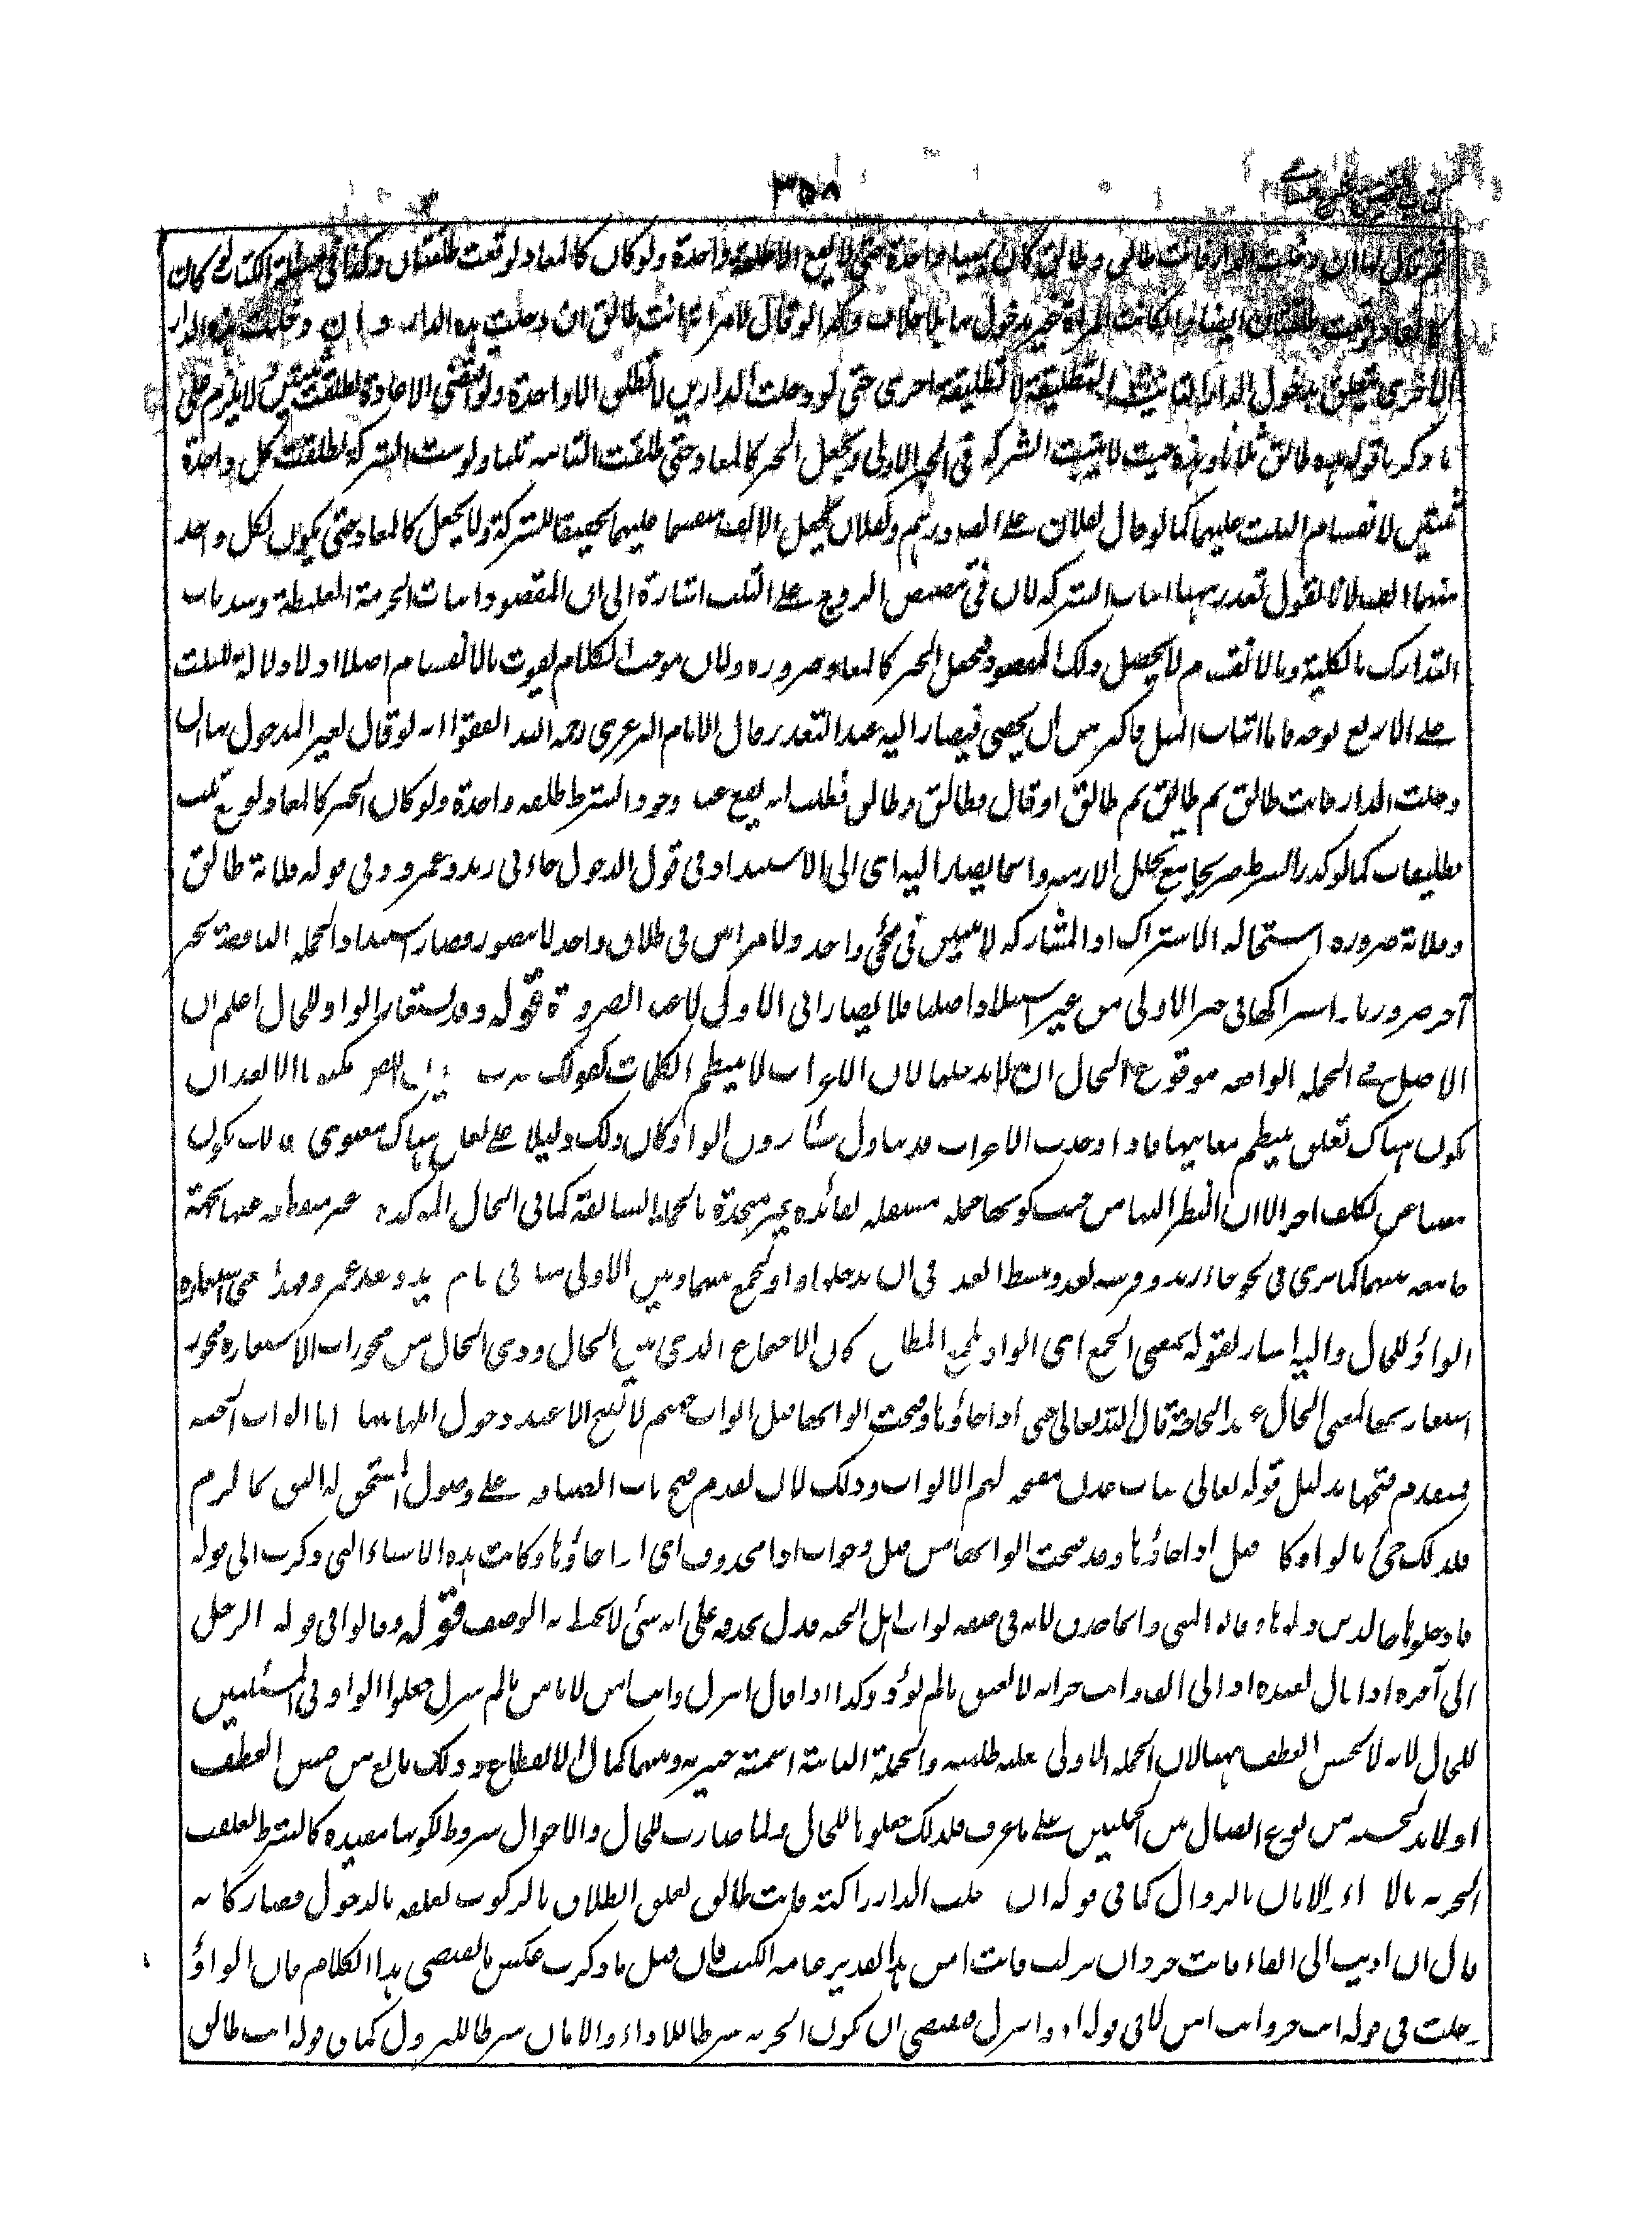 ٣٥٨
طالق وطالق كان يمينا واحدة حتى لا يقع الا طلقة واحدة ولو كان كالمعاد لوقعت طلقتان وكذا فى مسئلة الكتاب لو كان
كالمعاد وقعت طلقتان ايضا اذا كانت المرأة غير مدخول بها بلا خلاف وكذا لو قال لامرأته انت طالق ان دخلت هذه الدار وان دخلت هذه الدار
الاخرى يتعلق بدخول الدار الثانية تلك التطليقة لا تطليقة اخرى حتى لو دخلت الدارين لا تطلق الا واحدة ولو اقتضى الاعادة لطلقت ثنتين ولا يلزم على
ما ذكرنا قوله هذه طالق ثلثا وهذه حيث لا يثبت الشركة فى الخبر الاول ويجعل الخبر كالمعاد حتى طلقت الثانية ثلثا ولو ثبت الشركة لطلقت كل واحدة
ثنتين لانقسام الثلث عليهما كما لو قال لفلان على الف درهم ولفلان يجعل الالف منقسما عليهما تحقيقا للشركة ولا يجعل كالمعاد حتى يكون لكل واحد
منهما الف لانا نقول تعذر ههنا اثبات الشركة لان فى تنصيص الزوج على الثلث اشارة الى ان المقصود اثبات الحرمة الغليظة وسد باب
التدارك بالكلية وبالانقسام لا يحصل ذلك المقصود فيجعل الخبر كالمعاد ضرورة ولان موجب الكلام يفوت بالانقسام اصلا اذ لا دلالة للثلث
على الاربع بوجه فاما اثبات المثل فاكثر من ان يحصى فيصار اليه عند التعذر وقال الامام البرغرى رحمه الله اتفقوا انه لو قال لغير المدخول بها ان
دخلت الدار فانت طالق ثم طالق ثم طالق او قال وطالق وطالق فطلب انه يقع عند وجود الشرط طلقة واحدة ولو كان الخبر كالمعاد لوقع ثلث
تطليقات كما لو كرر الشرط صريحا مع تخلل الازمنة وانما يصار اليه اى الى الاستبداد فى قول الرجل جاءنى زيد وعمرو وفى قوله فلانة طالق
وفلانة ضرورة استحالة الاشتراك اذ المشاركة لاثنين فى مجئ واحد ولامرأتين فى طلاق واحد لا يتصور فصار استبداد الجملة الناقصة بخبر
آخر ضروريا واشتراكها فى خبر الاولى من غير استبداد اصليا فلا يصار الى الاول الا عند الضرورة قوله وقد يستعار الواو للحال اعلم ان
الاصل فى الجملة الواقعة موقع الحال ان لا يدخلها لان الاعراب لا ينتظم الكلمات كقولك ضرب زيد اللص مكتوفا الا بعد ان
يكون هناك تعلق ينتظم معانيها فاذا وجدت الاعراب قد تناول شيئا بدون الواو كان ذلك دليلا على تعلق هناك معنوى فذلك يكون
مغنيا عن تكلف آخر الا ان النظر اليها من حيث كونها جملة مستقلة بفائدة غير متحدة بالجملة السابقة كما فى الحال المؤكدة وغير منقطعة عنها بجهة
جامعة بينهما كما ترى فى نحو جاء زيد وفرسه يعدو يبسط العذر فى ان يدخلها واو لجمع بينها وبين الاولى مثلها فى قام زيد وقعد عمرو فهذا معنى استعارة
الواو للحال واليه اشار بقوله بمعنى الجمع اى الواو لجمع المطلق كان الاجتماع الذى بين الحال وذى الحال من مجوزات الاستعارة فيجوز
استعارتها لمعنى الحال عند الحاجة قال الله تعالى حتى اذا جاؤها وفتحت ابوابها قيل ابواب جهنم لا تفتح الا عند دخول اهلها فيها واما ابواب الجنة
فيتقدم فتحها بدليل قوله تعالى جنات عدن مفتحة لهم الابواب وذلك لان تقدم فتح باب الضيافة على وصول المستحق له اليق بالكرم
فلذلك جئ بالواو وكأنه قيل اذا جاؤها وقد فتحت ابوابها من قبل وجواب اذا محذوف اى اذا جاؤها وكانت هذه الاشياء التى ذكرت الى قوله
فادخلوها خالدين دخلوها ونالوا المنى وانما حذف لانه فى صفة ثواب اهل الجنة فدل بحذفه على انه شئ لا يحيط به الوصف قوله وقالوا فى قول الرجل
الى آخره اذا قال لعبده اد الى الفا وانت حر انه لا يعتق ما لم يؤد وكذا اذا قال انزل وانت آمن لا يأمن ما لم ينزل جعلوا الواو فى المسئلتين
للحال لانه لا يحسن العطف ههنا لان الجملة الاولى فعلية طلبية والجملة الثانية اسمية خبرية وبينهما كمال الانقطاع وذلك مانع من حسن العطف
اذ لا بد لحسنه من نوع اتصال بين الجملتين على ما عرف فلذلك جعلوها للحال ولما صارت للحال والاحوال شروط لكونها مقيدة كالشرط تعلقت
الحرية بالاداء والامان بالنزول كما فى قوله ان دخلت الدار راكبة فانت طالق تعلق الطلاق بالركوب تعلقه بالدخول فصار كانه
قال ان اديت الى الفا فانت حر وان نزلت فانت آمن بهذا التقدير عامة الكتب فان قيل ما ذكرت عكس ما يقتضى هذا الكلام فان الواو
دخلت فى قوله انت حر وانت آمن لا فى قوله اد وانزل فيقتضى ان تكون الحرية شرطا للاداء والامان شرطا للنزول كما فى قوله انت طالق